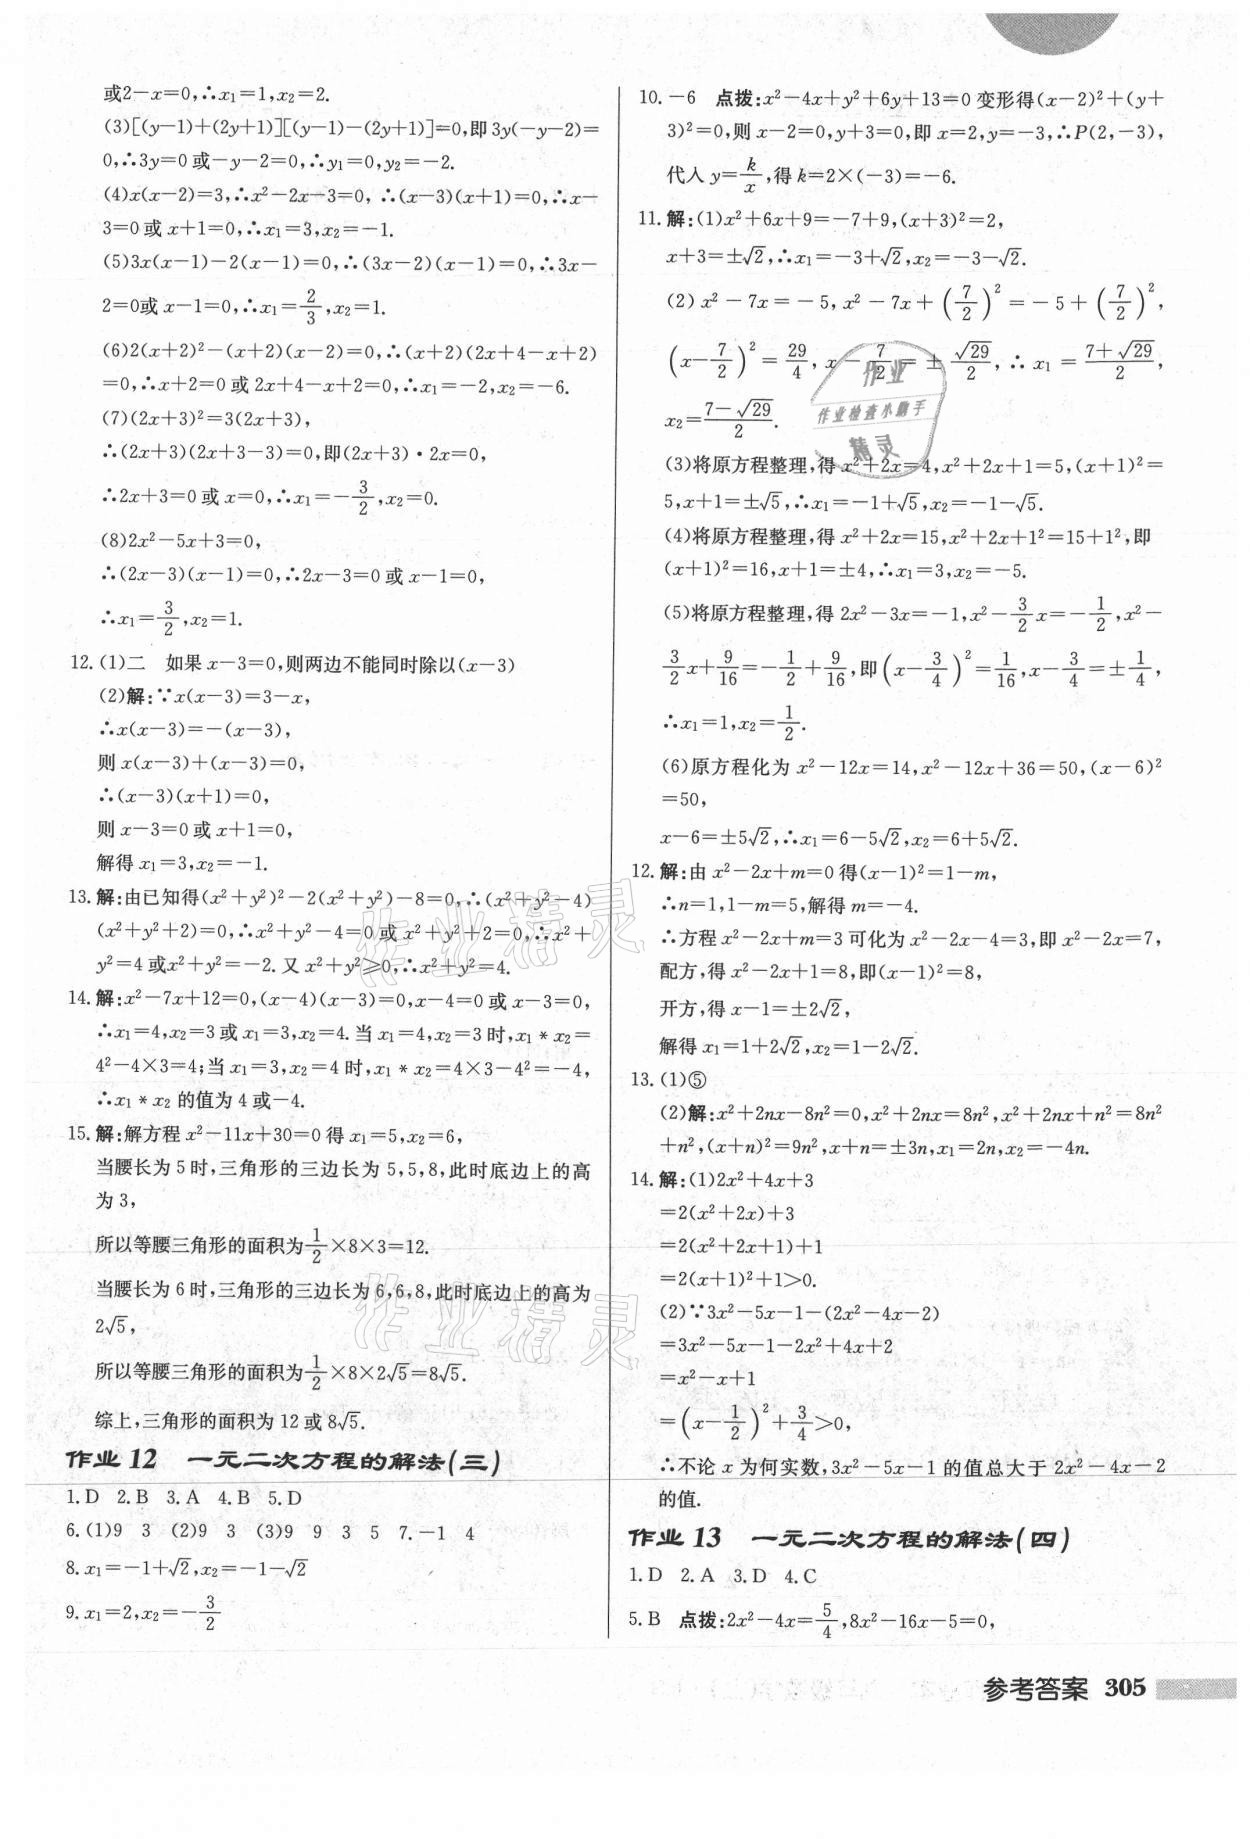 或2-x=0,∴x₁=1,x₂=2.
(3)[(y-1)+(2y+1)][(y-1)-(2y+1)]=0,即3y(-y-2)=
0,∴3y=0或-y-2=0,∴y₁=0,y₂=-2.
(4)x(x-2)=3,∴x²-2x-3=0, ∴(x-3)(x+1)=0,∴x-
3=0或x+1=0,∴x₁=3,x₂=-1.
(5)3x(x-1)-2(x-1)=0,∴(3x-2)(x-1)=0,∴3x-
2=0或x-1=0,∴x₁=2/3,x₂=1.
(6)2(x+2)²-(x+2)(x-2)=0,∴(x+2)(2x+4-x+2)
=0,∴x+2=0或2x+4-x+2=0,∴x₁=-2,x₂=-6.
(7)(2x+3)²=3(2x+3),
∴(2x+3)(2x+3-3)=0,即(2x+3)·2x=0,
∴2x+3=0或x=0,∴x₁=-3/2,x₂=0.
(8)2x²-5x+3=0,
∴(2x-3)(x-1)=0,∴2x-3=0或x-1=0,
∴x₁=3/2,x₂=1.
12.(1)二 如果x-3=0,则两边不能同时除以(x-3)
(2)解:∵x(x-3)=3-x,
∴x(x-3)=-(x-3),
则x(x-3)+(x-3)=0,
∴(x-3)(x+1)=0,
则x-3=0或x+1=0,
解得x₁=3,x₂=-1.
13.解:由已知得(x²+y²)²-2(x²+y²)-8=0,∴(x²+y²-4)
(x²+y²+2)=0,∴x²+y²-4=0或x²+y²+2=0,∴x²+
y²=4或x²+y²=-2.又x²+y²≥0,∴x²+y²=4.
14.解:x²-7x+12=0,(x-4)(x-3)=0,x-4=0或x-3=0,
∴x₁=4,x₂=3或x₁=3,x₂=4.当x₁=4,x₂=3时,x₁*x₂=
4²-4×3=4;当x₁=3,x₂=4时,x₁*x₂=4×3-4²=-4,
∴x₁*x₂的值为4或-4.
15.解:解方程x²-11x+30=0得x₁=5,x₂=6,
当腰长为5时,三角形的三边长为5,5,8,此时底边上的高
为3,
所以等腰三角形的面积为1/2×8×3=12.
当腰长为6时,三角形的三边长为6,6,8,此时底边上的高为
2√5,
所以等腰三角形的面积为1/2×8×2√5=8√5.
综上,三角形的面积为12或8√5.
作业12 一元二次方程的解法(三)
1.D 2.B 3.A 4.B 5.D
6.(1)9 3 (2)9 3 (3)9 9 3 5 7.-1 4
8.x₁=-1+√2,x₂=-1-√2
9.x₁=2,x₂=-3/2
10.-6 点拨:x²-4x+y²+6y+13=0变形得(x-2)²+(y+
3)²=0,则x-2=0,y+3=0,即x=2,y=-3,∴P(2,-3),
代入y=k/x,得k=2×(-3)=-6.
11.解:(1)x²+6x+9=-7+9,(x+3)²=2,
x+3=±√2,∴x₁=-3+√2,x₂=-3-√2.
(2)x²-7x=-5,x²-7x+(7/2)²=-5+(7/2)²,
(x-7/2)²=29/4,x-7/2=±√29/2,∴x₁=(7+√29)/2,
x₂=(7-√29)/2.
(3)将原方程整理,得x²+2x=4,x²+2x+1=5,(x+1)²=
5,x+1=±√5,∴x₁=-1+√5,x₂=-1-√5.
(4)将原方程整理,得x²+2x=15,x²+2x+1²=15+1²,即
(x+1)²=16,x+1=±4,∴x₁=3,x₂=-5.
(5)将原方程整理,得2x²-3x=-1,x²-3/2x=-1/2,x²-
3/2x+9/16=-1/2+9/16,即(x-3/4)²=1/16,x-3/4=±1/4,
∴x₁=1,x₂=1/2.
(6)原方程化为x²-12x=14,x²-12x+36=50,(x-6)²
=50,
x-6=±5√2,∴x₁=6-5√2,x₂=6+5√2.
12.解:由x²-2x+m=0得(x-1)²=1-m,
∴n=1,1-m=5,解得m=-4.
∴方程x²-2x+m=3可化为x²-2x-4=3,即x²-2x=7,
配方,得x²-2x+1=8,即(x-1)²=8,
开方,得x-1=±2√2,
解得x₁=1+2√2,x₂=1-2√2.
13.(1)⑤
(2)解:x²+2nx-8n²=0,x²+2nx=8n²,x²+2nx+n²=8n²
+n²,(x+n)²=9n²,x+n=±3n,x₁=2n,x₂=-4n.
14.解:(1)2x²+4x+3
=2(x²+2x)+3
=2(x²+2x+1)+1
=2(x+1)²+1>0.
(2)∵3x²-5x-1-(2x²-4x-2)
=3x²-5x-1-2x²+4x+2
=x²-x+1
=(x-1/2)²+3/4>0,
∴不论x为何实数,3x²-5x-1的值总大于2x²-4x-2
的值.
作业13 一元二次方程的解法(四)
1.D 2.A 3.D 4.C
5.B 点拨:2x²-4x=5/4,8x²-16x-5=0,
参考答案 305
作业
作业检查小助手
精灵
作业精灵
作业精灵